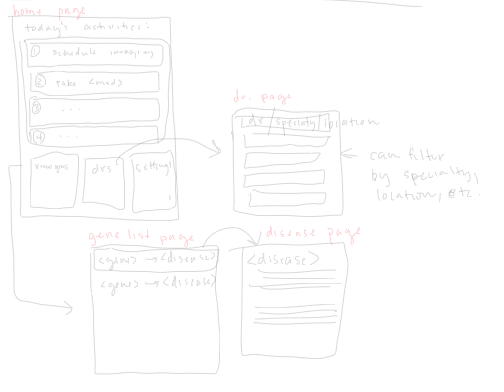 home page
today's activities:
① schedule imaging
② take <med>
③ ...
④ ...
drs
settings
dr. page
<dr/specialty/location
can filter
by specialty,
location, etc.
gene list page
<gene> → <disease>
<gene> → <disease>
disease page
<disease>